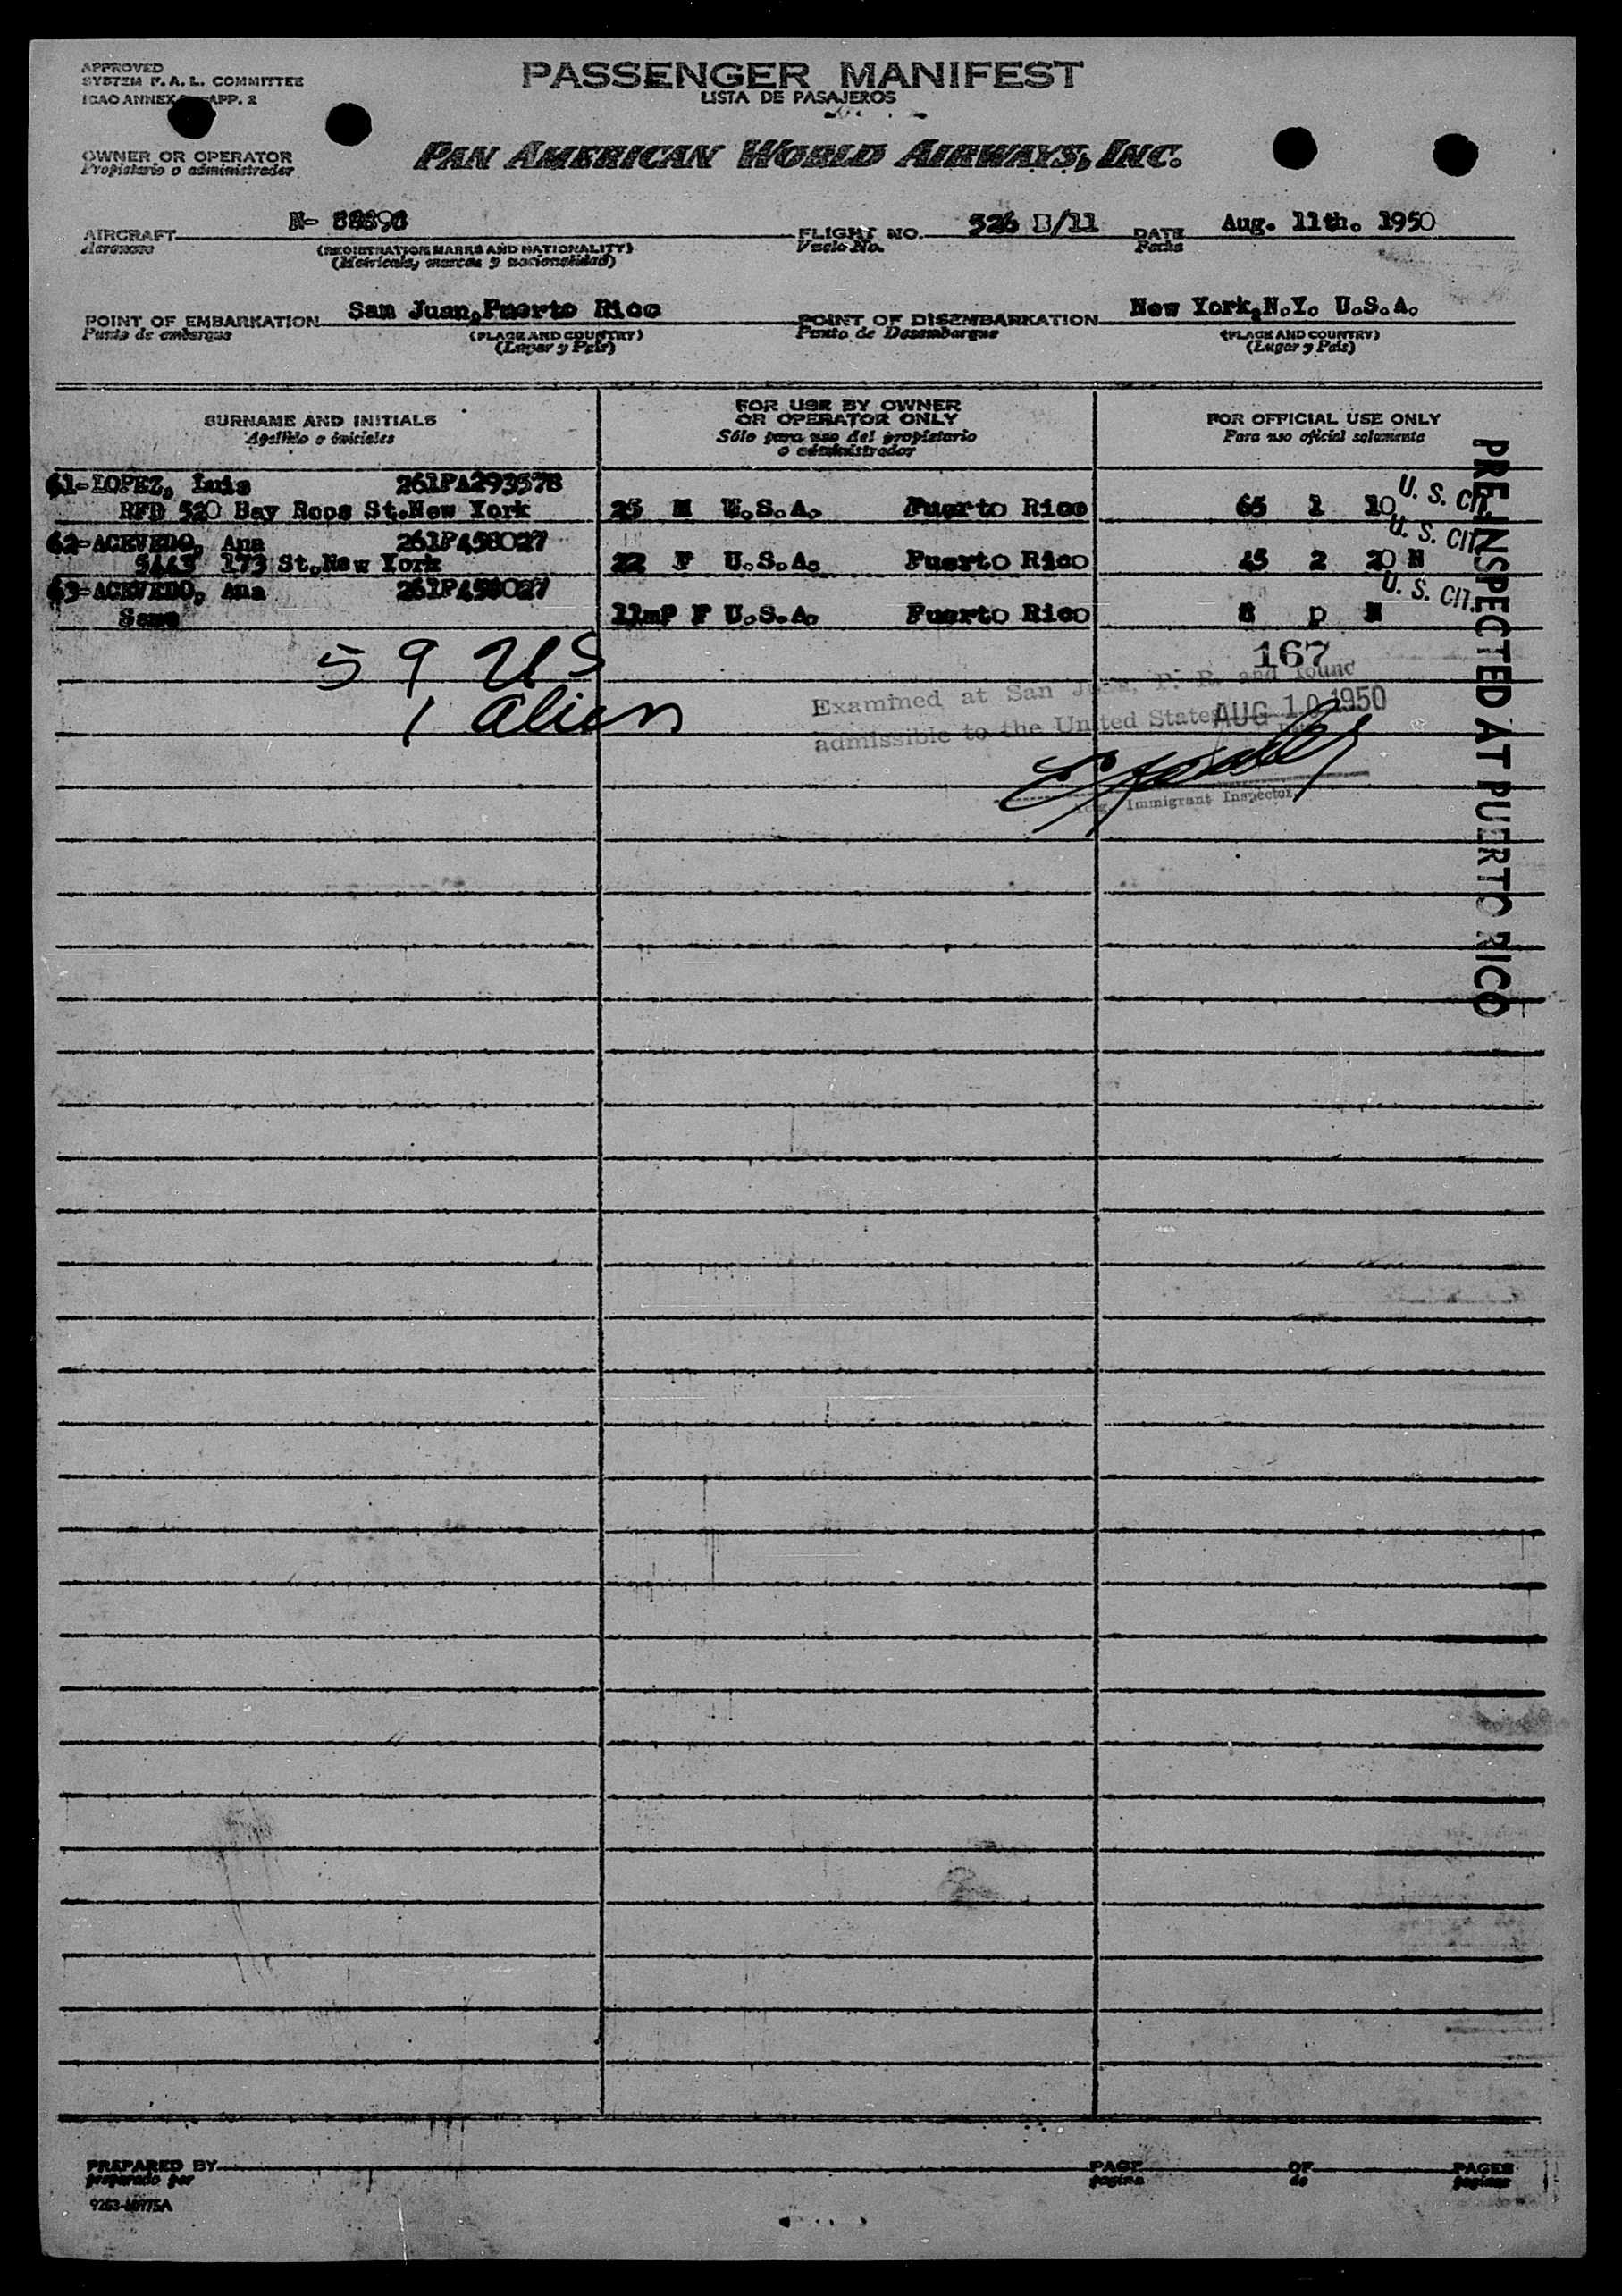 APPROVED
SYSTEM F.A.L. COMMITTEE
ICAO ANNEX APP. 2
PASSENGER MANIFEST
LISTA DE PASAJEROS
OWNER OR OPERATOR
Propietario o administrador
PAN AMERICAN WORLD AIRWAYS, INC.
AIRCRAFT N-
Aeronave
(REGISTRATION MARKS AND NATIONALITY)
(Matricula, marcas y nacionalidad)
FLIGHT NO. 526 8/11
Vuelo No.
DATE Aug. 11th. 1950
Fecha
POINT OF EMBARKATION San Juan,Puerto Rico
Punto de embarque
(PLACE AND COUNTRY)
(Lugar y País)
POINT OF DISEMBARKATION New York,N.Y. U.S.A.
Punto de Desembarque
(PLACE AND COUNTRY)
(Lugar y País)
SURNAME AND INITIALS
Apellido e iniciales
FOR USE BY OWNER
OR OPERATOR ONLY
Sólo para uso del propietario
o administrador
FOR OFFICIAL USE ONLY
Para uso oficial solamente
61-LOPEZ, Luis 261PA293578
RFD 520 Bay Roos St.New York 25 M U.S.A. Puerto Rico 65 1 10 U. S. CIT.
62-ACEVEDO, Ana 261P458027
173 St.New York 22 F U.S.A. Puerto Rico 45 2 20 N U. S. CIT.
63-ACEVEDO, Ana 261P458027
Same F U.S.A. Puerto Rico N U. S. CIT.
59 US
1 alien
167
Examined at San Juan, P. R. and found
admissible to the United States AUG 10 1950
Immigrant Inspector
PRE-INSPECTED AT PUERTO RICO
PREPARED BY
preparado por
PAGE OF PAGES
pagina de paginas